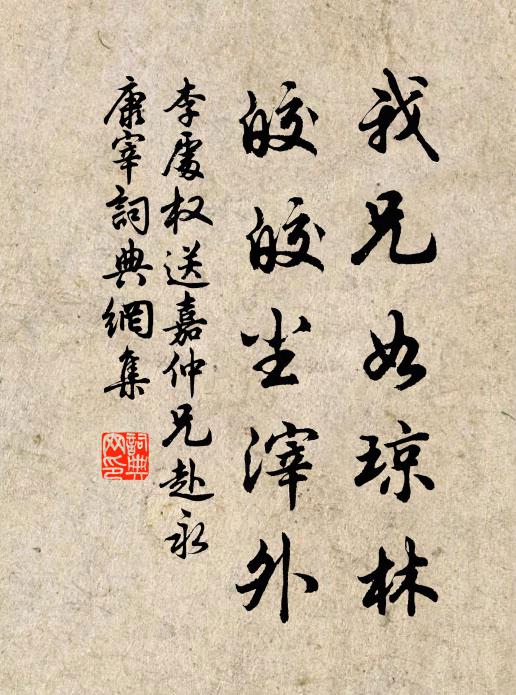 我兄如琼林
皎皎尘滓外
李處权送嘉仲兄赴永
康宰詞典網集
詞典网印